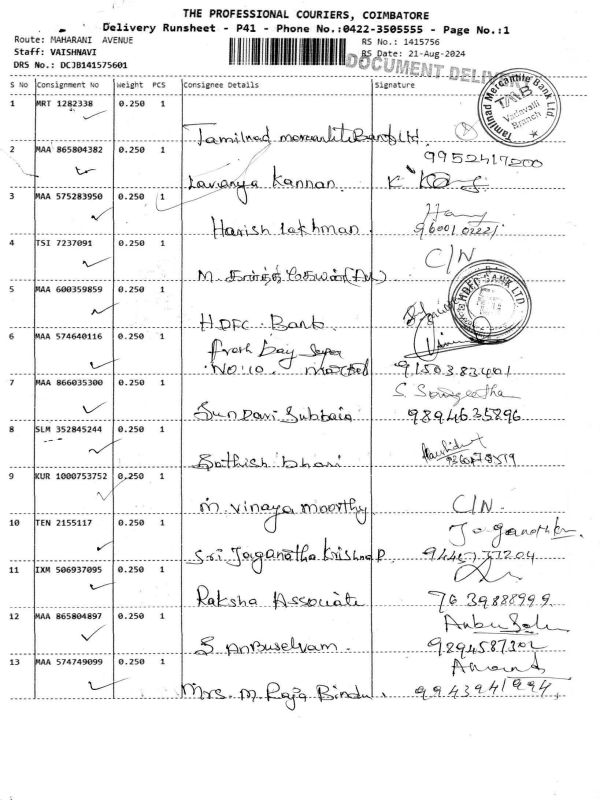 THE PROFESSIONAL COURIERS, COIMBATORE
Delivery Runsheet - P41 - Phone No.:0422-3505555 - Page No.:1
Route: MAHARANI AVENUE
RS No.: 1415756
Staff: VAISHNAVI
RS Date: 21-Aug-2024
DRS No.: DCJB141575601
DOCUMENT DELIVERY
S No Consignment No Weight PCS Consignee Details Signature
1 MRT 1282338 0.250 1
Tamilnad Mercantile Bank Ltd
TMB
Vadavalli
Branch
Tamilnad mercantile Bank Ltd.
2 MAA 865804382 0.250 1
9952417200
Lavanya Kannan.
3 MAA 575283950 0.250 1
Harish Lakhman.
4 TSI 7237091 0.250 1
C/N
M.
5 MAA 600359859 0.250 1
HDFC BANK LTD.
HDFC. Bank
6 MAA 574640116 0.250 1
fresh Day
NO:10.
7 MAA 866035300 0.250 1
Sundari Subbaia
9894635896
8 SLM 352845244 0.250 1
Sathish
9 KUR 1000753752 0.250 1
M. Vinaya moorthy
C/N.
10 TEN 2155117 0.250 1
Sri Jaganatha Krishna P.
11 IXM 506937095 0.250 1
Raksha Associate
7639888999
12 MAA 865804897 0.250 1
S. Anbuselvam.
9894587302
13 MAA 574749099 0.250 1
Anand
Mrs. M. Raja Bindu.
9943941994